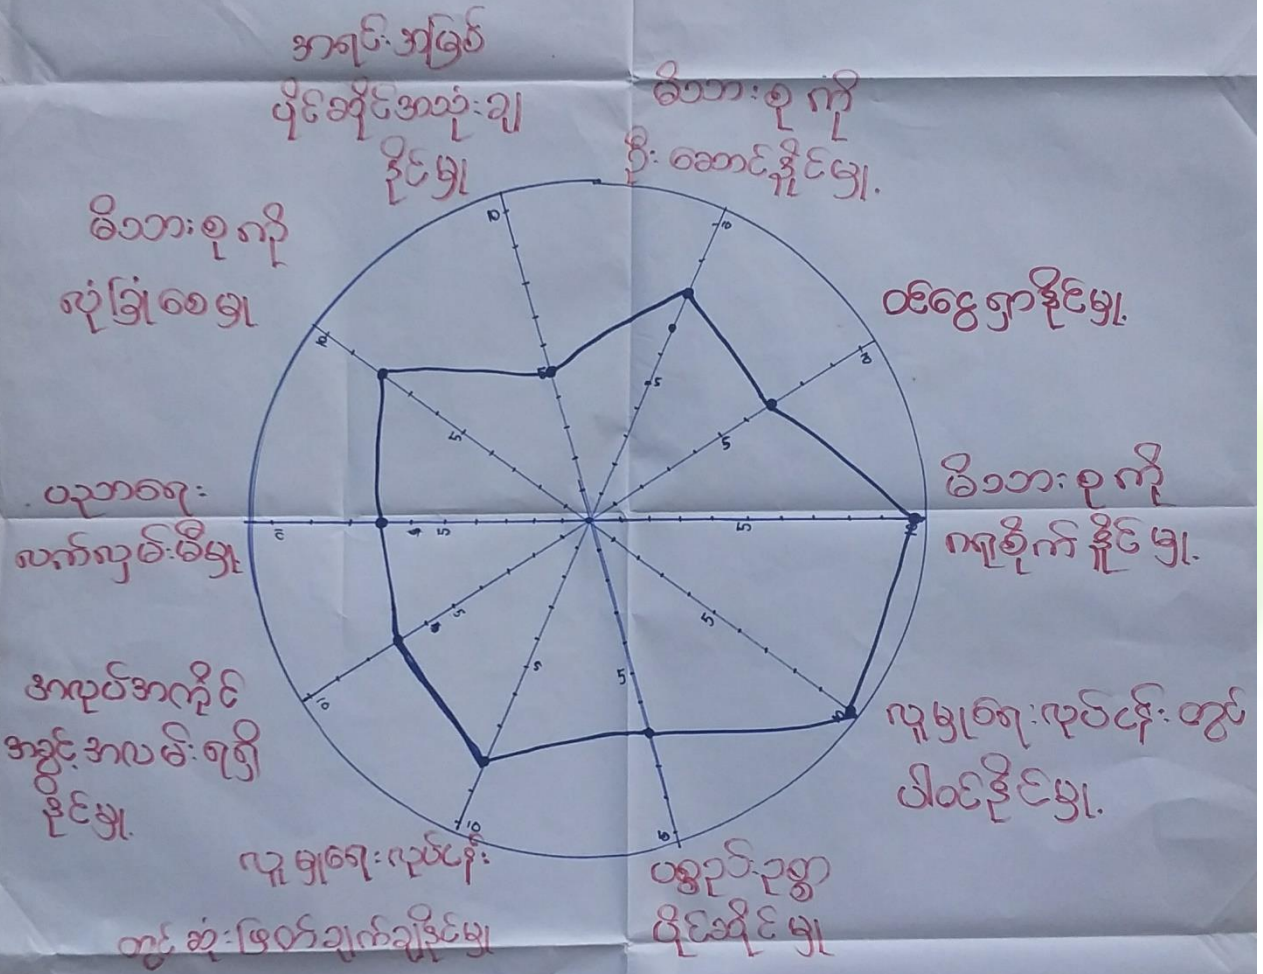 အရင်းအမြစ်
ပိုင်ဆိုင်အသုံးချ
နိုင်မှု
မိသားစုကို
ဦးဆောင်နိုင်မှု.
ဝင်ငွေရှာနိုင်မှု.
မိသားစုကို
ဂရုစိုက်နိုင်မှု.
လူမှုရေးလုပ်ငန်းတွင်
ပါဝင်နိုင်မှု.
ပစ္စည်းဥစ္စာ
ပိုင်ဆိုင်မှု
လူမှုရေးလုပ်ငန်း
တွင် ဆုံးဖြတ်ချက်ချနိုင်မှု
အလုပ်အကိုင်
အခွင့်အလမ်းရရှိ
နိုင်မှု.
ပညာရေး
လက်လှမ်းမီမှု
မိသားစုကို
လုံခြုံစေမှု
10
5
5
5
5
10
5
10
5
5
5
10
5